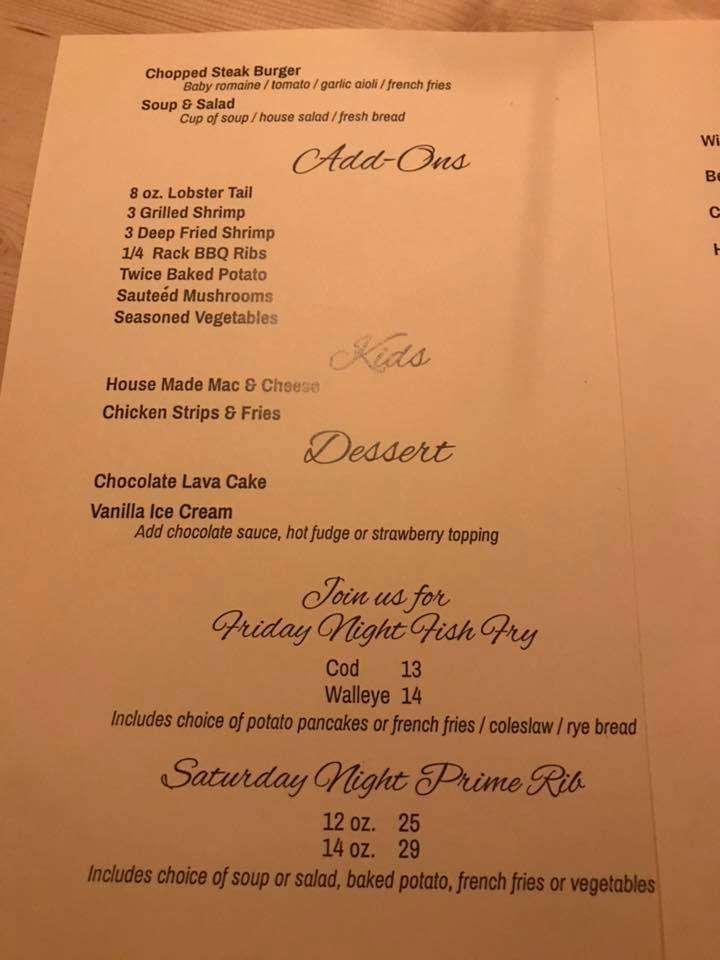 Chopped Steak Burger
Baby romaine / tomato / garlic aioli / french fries
Soup & Salad
Cup of soup / house salad / fresh bread
Add-Ons
8 oz. Lobster Tail
3 Grilled Shrimp
3 Deep Fried Shrimp
1/4 Rack BBQ Ribs
Twice Baked Potato
Sauteéd Mushrooms
Seasoned Vegetables
Kids
House Made Mac & Cheese
Chicken Strips & Fries
Dessert
Chocolate Lava Cake
Vanilla Ice Cream
Add chocolate sauce, hot fudge or strawberry topping
Join us for
Friday Night Fish Fry
Cod 13
Walleye 14
Includes choice of potato pancakes or french fries / coleslaw / rye bread
Saturday Night Prime Rib
12 oz. 25
14 oz. 29
Includes choice of soup or salad, baked potato, french fries or vegetables